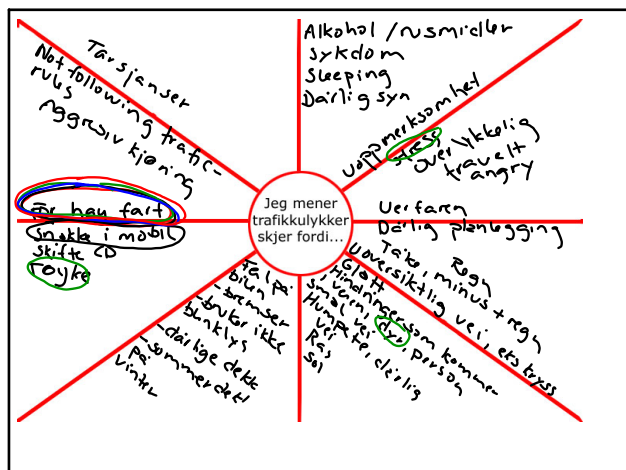 Jeg mener
trafikkulykker
skjer fordi...
Alkohol / rusmidler
sykdom
Sleeping
Dårlig syn
uoppmerksomhet
stress
Overlykkelig
travelt
angry
Uerfaren
Dårlig planlegging
Regn
Tåke, minus + regn
Uoversiktlig vei, eks kryss
Glatt
Hindringer som kommer
i veien, dyr, person
smal vei
Humpete, dårlig
vei
Ras
Sol
Feil på
bilen
-bremser
-bruker ikke
blinklys
-dårlige dekk
-sommerdekk
på
vinter
For høy fart
snakke i mobil
skifte CD
røyke
Tar sjanser
Not following trafic-
rules
Aggresiv kjøring